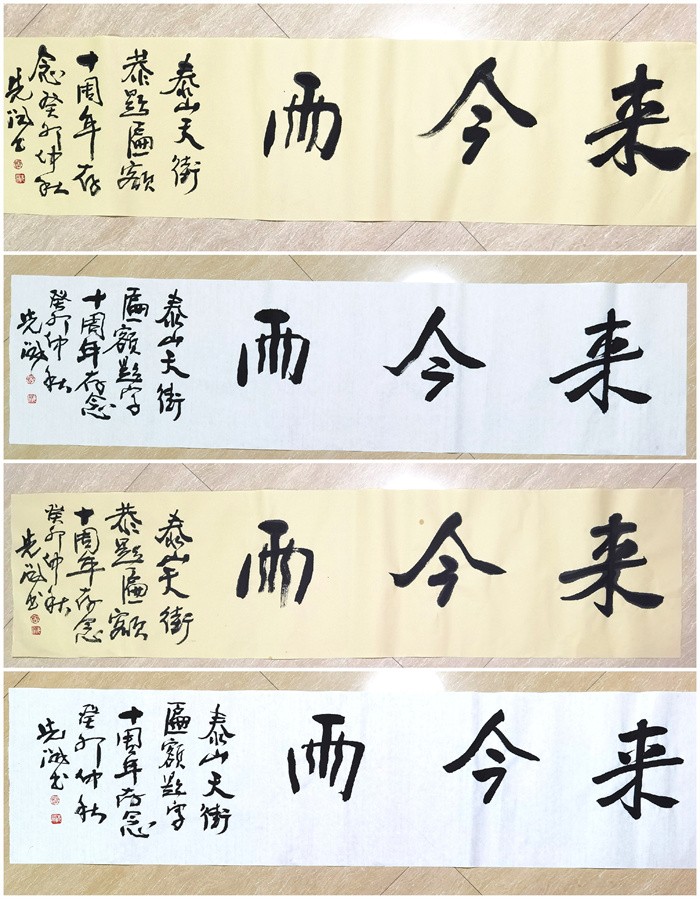 来今雨
泰山天街
恭题匾额
十周年存
念癸卯仲秋
来今雨
泰山天街
匾额题字
十周年存念
癸卯仲秋
来今雨
泰山天街
恭题匾额
十周年存念
癸卯仲秋
来今雨
泰山天街
匾额题字
十周年存念
癸卯仲秋